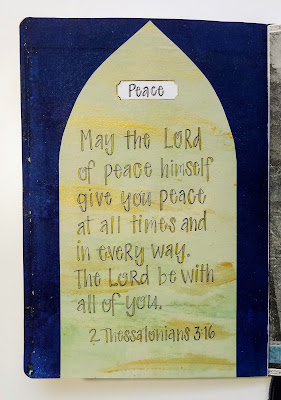 Peace
May the LORD
of peace himself
give you peace
at all times and
in every way.
The LORD be with
all of you.
2 Thessalonians 3:16